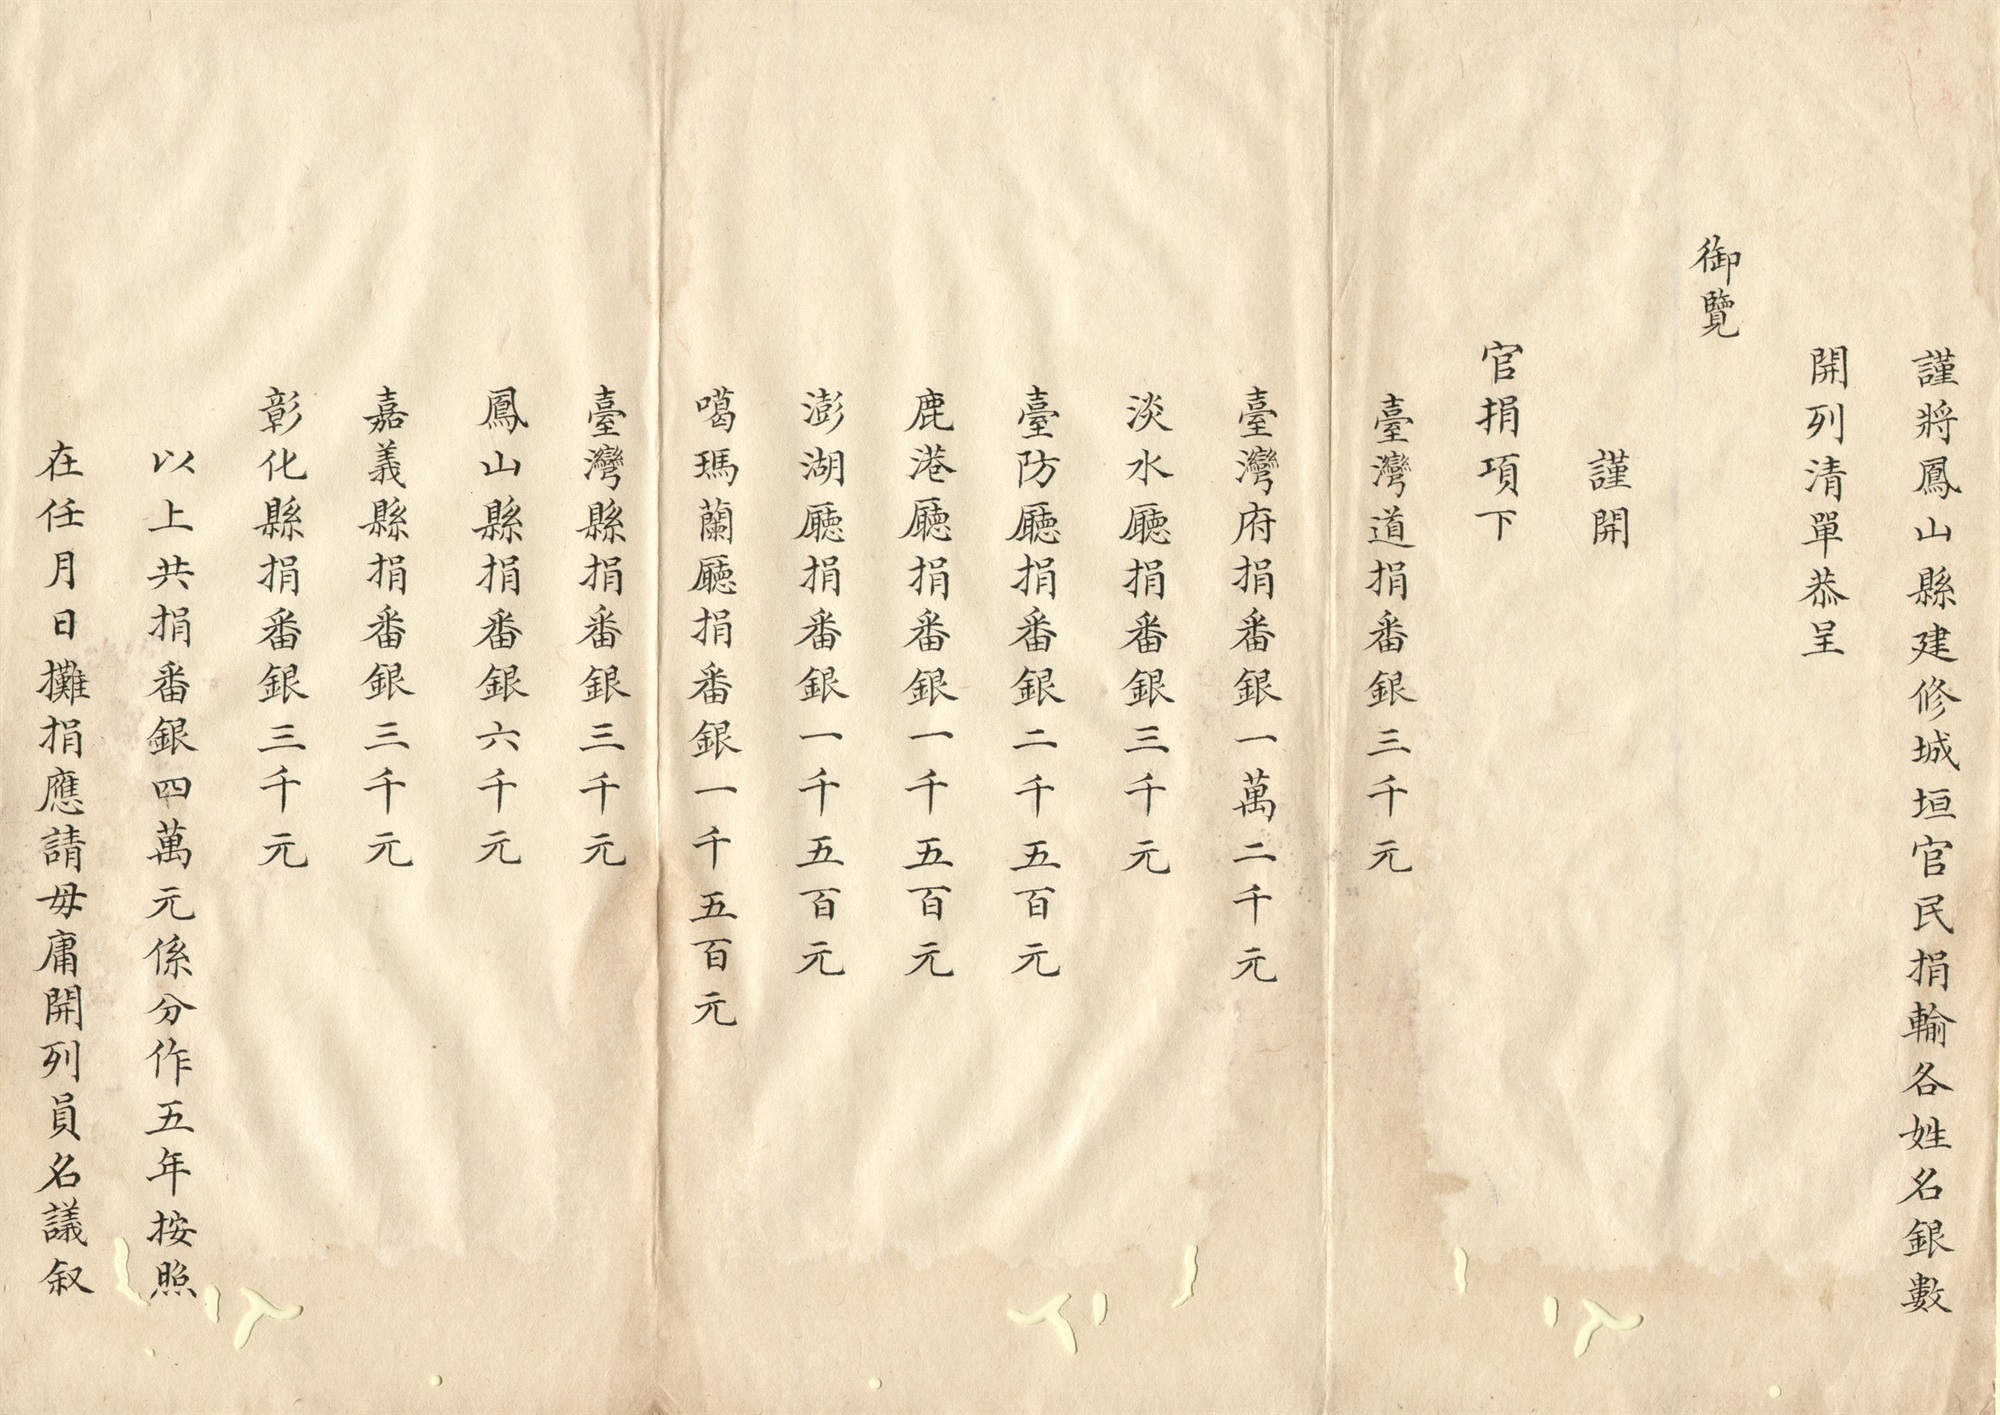 謹將鳳山縣建修城垣官民捐輸各姓名銀數
開列清單恭呈
御覽
謹開
官捐項下
臺灣道捐番銀三千元
臺灣府捐番銀一萬二千元
淡水廳捐番銀三千元
臺防廳捐番銀二千五百元
鹿港廳捐番銀一千五百元
澎湖廳捐番銀一千五百元
噶瑪蘭廳捐番銀一千五百元
臺灣縣捐番銀三千元
鳳山縣捐番銀六千元
嘉義縣捐番銀三千元
彰化縣捐番銀三千元
以上共捐番銀四萬元係分作五年按照
在任月日攤捐應請毋庸開列員名議叙